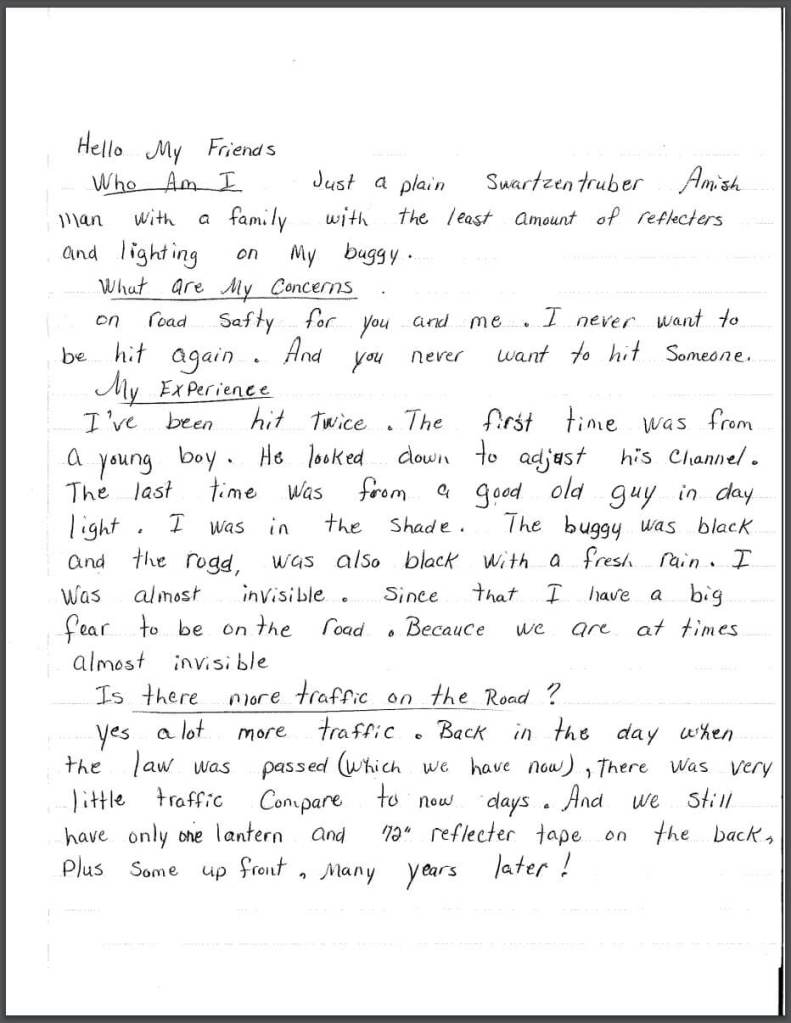 Hello My Friends
Who Am I Just a plain Swartzentruber Amish
man with a family with the least amount of reflecters
and lighting on My buggy.
What are My Concerns.
on road Safty for you and me. I never want to
be hit again. And you never want to hit Someone.
My Experience
I've been hit Twice. The first time was from
a young boy. He looked down to adjast his Channel.
The last time was from a good old guy in day
light. I was in the Shade. The buggy was black
and the road, was also black with a fresh rain. I
was almost invisible. Since that I have a big
fear to be on the road. Becauce we are at times
almost invisible
Is there more traffic on the Road?
yes a lot more traffic. Back in the day when
the law was passed (which we have now), There was very
little traffic Compare to now days. And we Still
have only one lantern and 72" reflecter tape on the back,
Plus Some up front, Many years later!